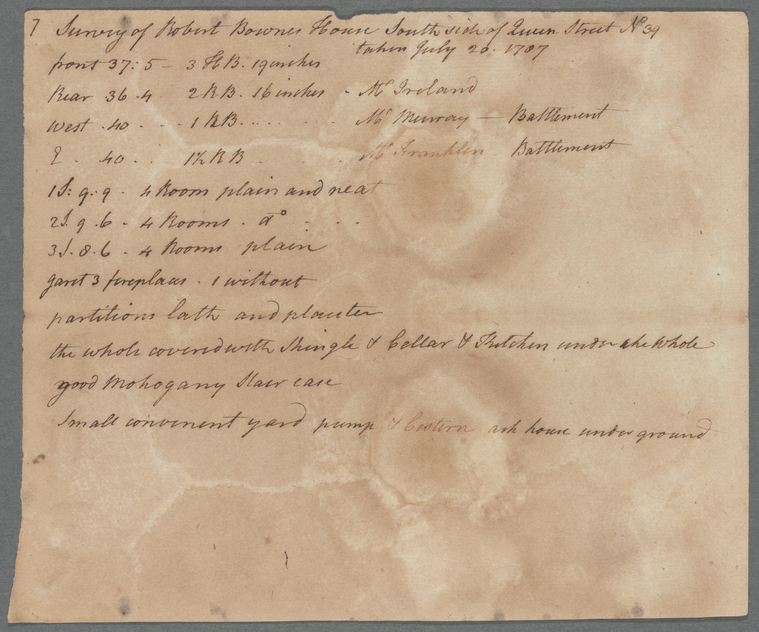 7 Survey of Robert Bownes House South side of Queen Street No 39
taken July 20. 1787
front 37: 5 - 3 H B. 19 inches
Rear 36.4 2 R B. 16 inches - Mr Ireland
West .40 . - . 1 R B. .... Mr Murray — Battlement
E . 40 . . 1½ R B . .... Mr Franklin Battlement
1 S: 9. 9 - 4 Room plain and neat
2 S. 9. 6 - 4 Rooms . do - - -
3 S. 8. 6 . 4 Rooms plain
garet 3 fireplaces . 1 without
partitions lath and plaister
the whole covered with Shingle & Cellar & Kitchen under the whole
good Mohogany Stair case
Small convenient yard pump & Cistern ash house under ground